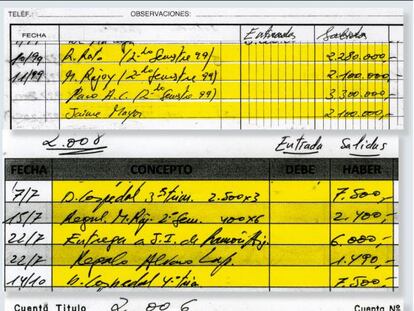 TELÉF.: OBSERVACIONES:
FECHA Entradas Salidas
10/99 R. Rato (2º semestre 99) 2.280.000,-
11/99 M. Rajoy (2º semestre 99) 2.100.000,-
Paco A.C. (2º semestre 99) 3.300.000,-
Jaime Mayor 2.100.000,-
2.008 Entrada Salidas
FECHA CONCEPTO DEBE HABER
7/7 D. Cospedal 3º trim. 2.500x3 7.500,-
15/7 Regul. M. Raj. 2º Sem. 400x6 2.400,-
22/7 Entrega a J.I. de 6.000,-
22/7 Regalo Alvaro Lap. 1.490,-
14/10 D. Cospedal 4º trim. 7.500,-
Cuenta Título 2.006 Cuenta Nº